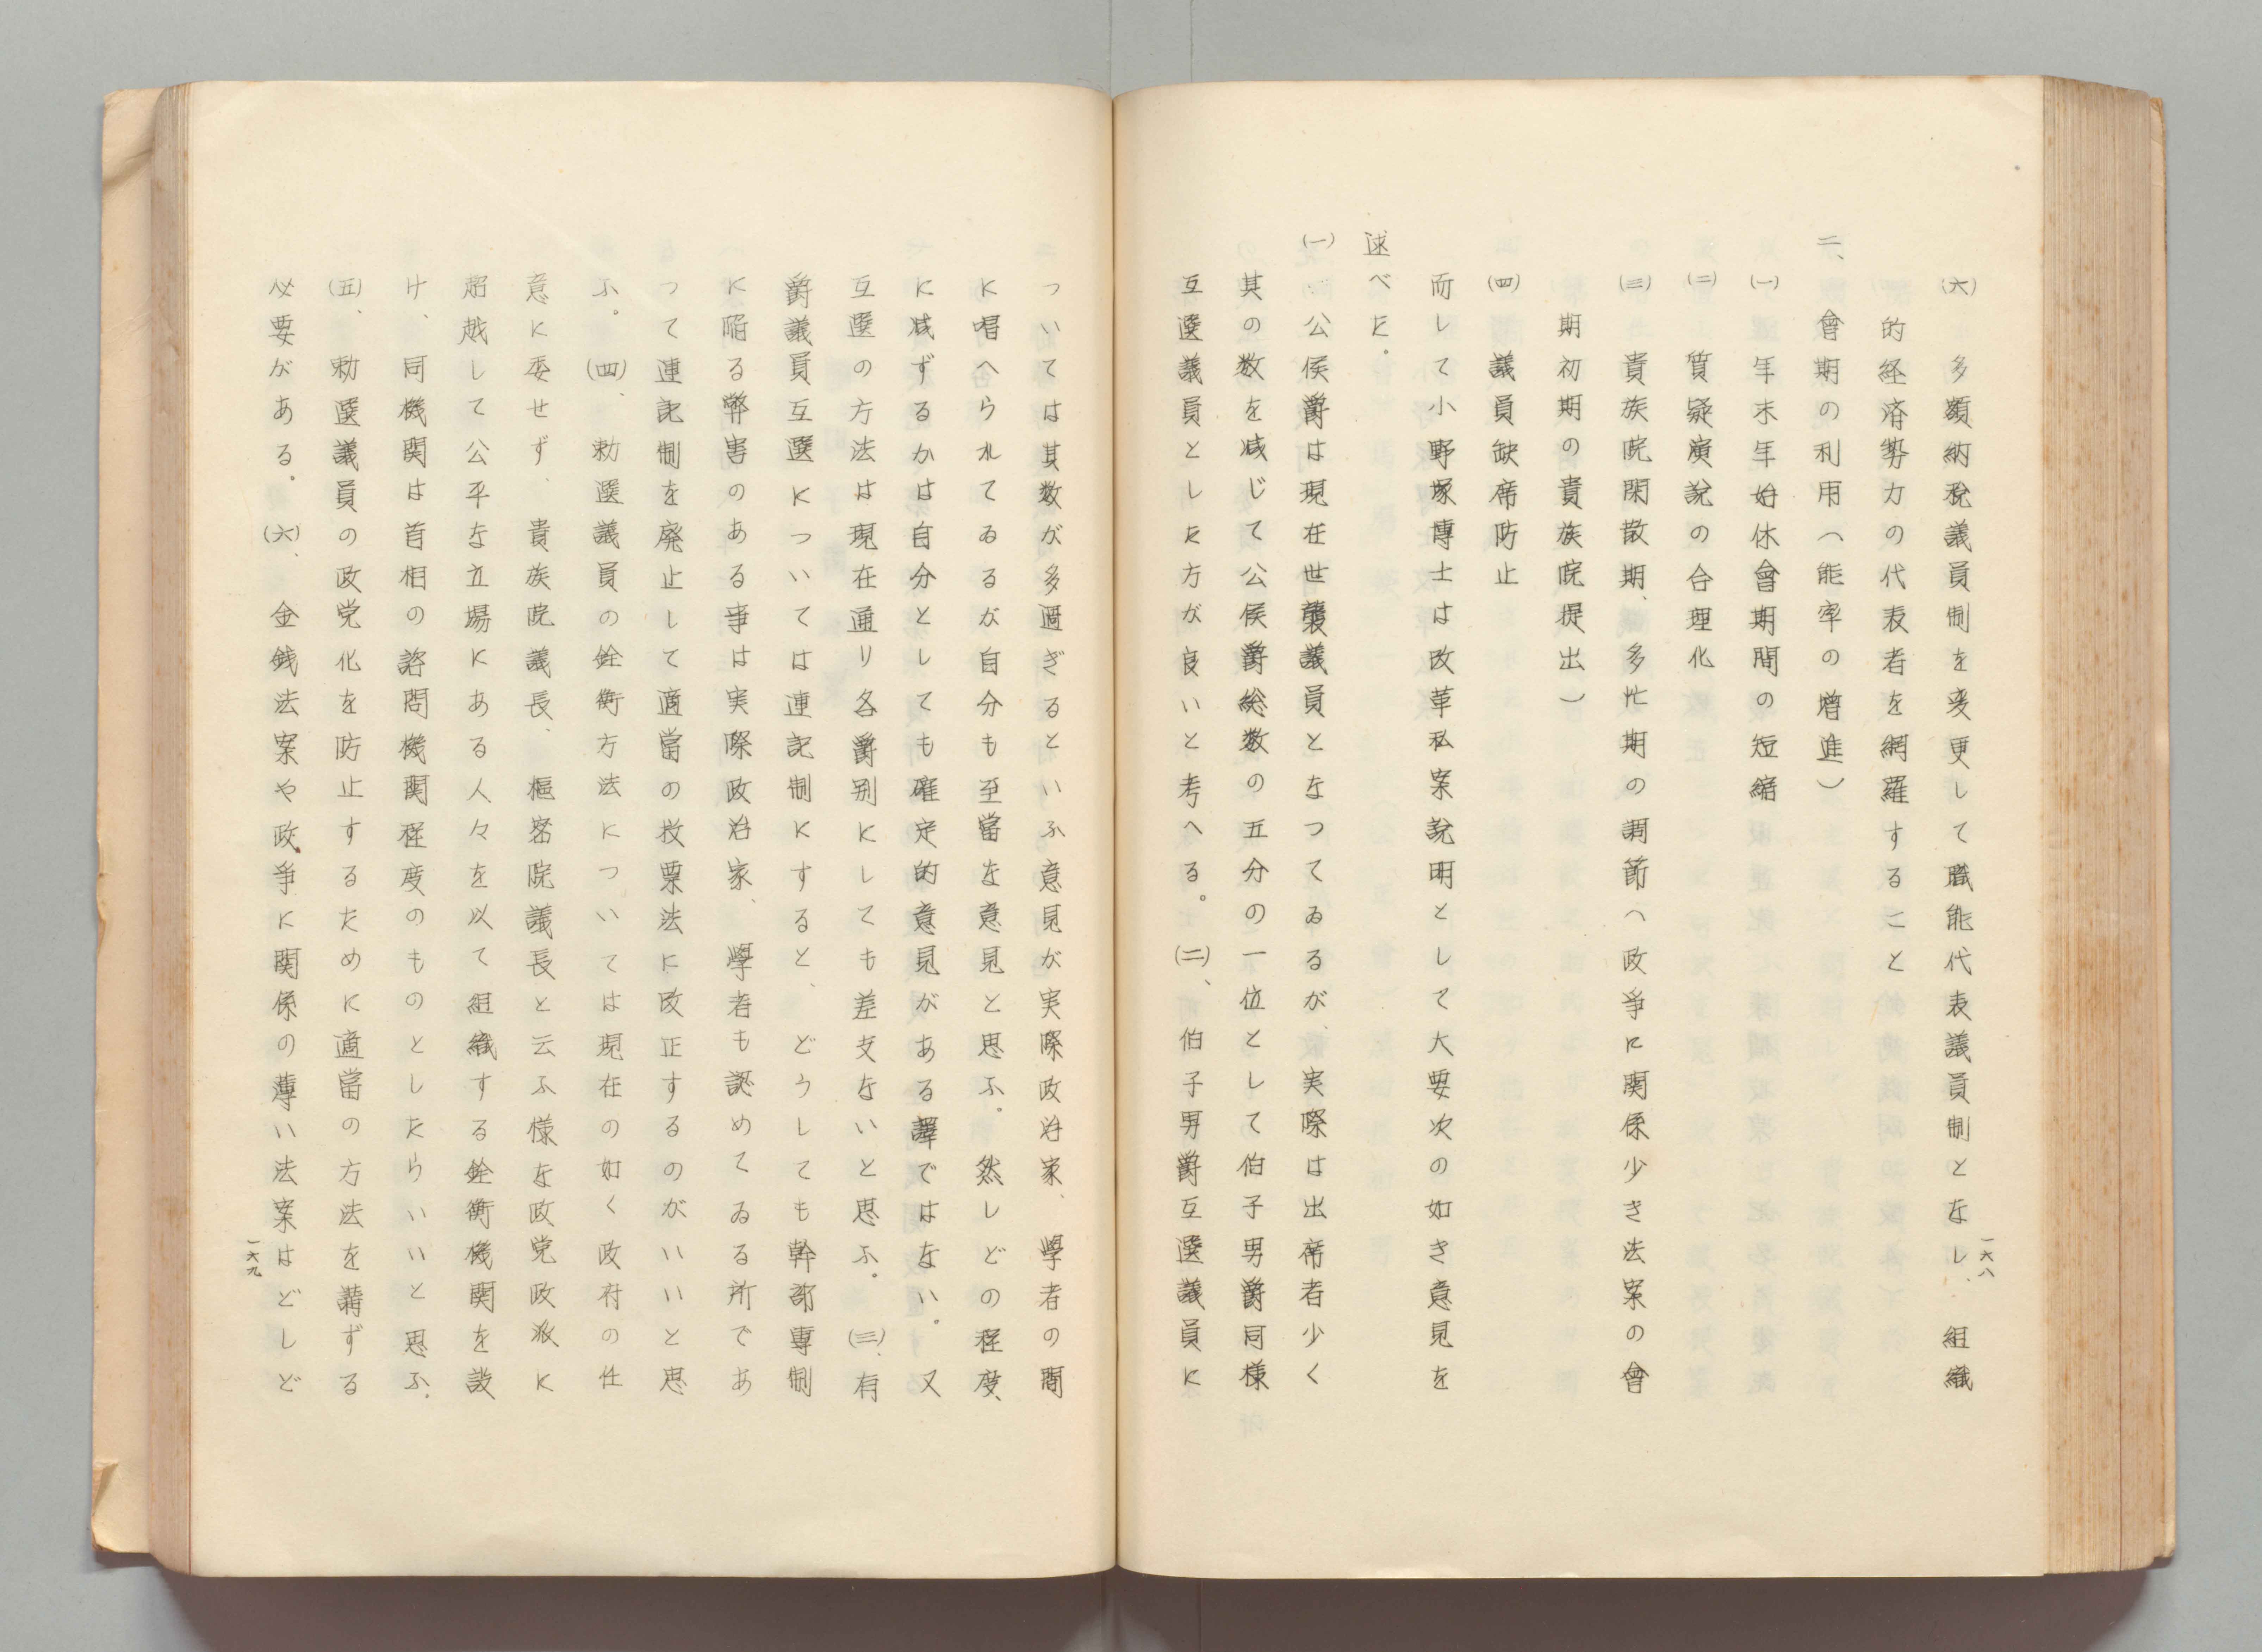 ㈥　多額納税議員制を変更して職能代表議員制となし、組織
的経済勢力の代表者を網羅すること
二、會期の利用（能率の増進）
㈠　年末年始休會期間の短縮
㈡　質疑演說の合理化
㈢　貴族院閑散期、多忙期の調節（政争に関係少き法案の會
期初期の貴族院提出）
㈣　議員缺席防止
而して小野塚博士は改革私案說明として大要次の如き意見を
述べた。
㈠　公侯爵は現在世襲議員となつてゐるが、実際は出席者少く
其の数を减じて公侯爵総数の五分の一位として伯子男爵同様
互選議員とした方が良いと考へる。㈡、伯子男爵互選議員に
一六八
ついては其数が多過ぎるといふ意見が実際政治家、學者の間
に唱へられてゐるが自分も至當な意見と思ふ。然しどの程度
に减ずるかは自分としても確定的意見がある譯ではない。又
互選の方法は現在通り各爵别にしても差支ないと思ふ。㈢、有
爵議員互選については連記制にすると、どうしても幹部専制
に陥る弊害のある事は実際政治家、學者も認めてゐる所であ
つて連記制を廃止して適當の投票法に改正するのがいいと思
ふ。㈣、勅選議員の銓衡方法については現在の如く政府の任
意に委せず、貴族院議長、樞密院議長と云ふ様な政党政派に
超越して公平な立場にある人々を以て組織する銓衡機関を設
け、同機関は首相の諮問機関程度のものとしたらいいと思ふ。
㈤、勅選議員の政党化を防止するために適當の方法を講ずる
必要がある。㈥、金銭法案や政争に関係の薄い法案はどしど
一六九